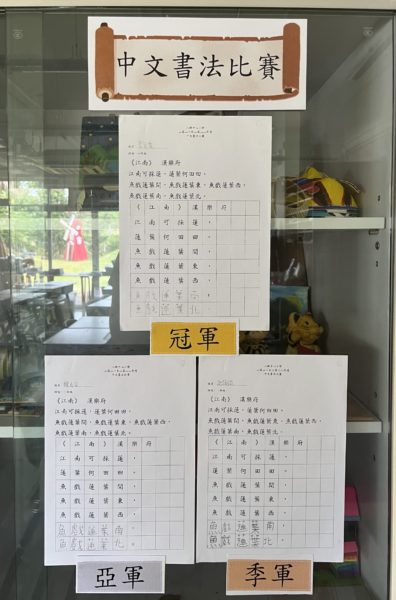 中文書法比賽
《江南》 漢樂府
江南可採蓮，蓮葉何田田。
魚戲蓮葉間，魚戲蓮葉東，魚戲蓮葉西，
魚戲蓮葉南，魚戲蓮葉北。
《江南》漢樂府
江南可採蓮，
蓮葉何田田。
魚戲蓮葉間，
魚戲蓮葉東，
魚戲蓮葉西，
魚戲蓮葉南，
魚戲蓮葉北。
冠軍
《江南》 漢樂府
江南可採蓮，蓮葉何田田。
魚戲蓮葉間，魚戲蓮葉東，魚戲蓮葉西，
魚戲蓮葉南，魚戲蓮葉北。
《江南》漢樂府
江南可採蓮，
蓮葉何田田。
魚戲蓮葉間，
魚戲蓮葉東，
魚戲蓮葉西，
魚戲蓮葉南，
魚戲蓮葉北。
亞軍
《江南》 漢樂府
江南可採蓮，蓮葉何田田。
魚戲蓮葉間，魚戲蓮葉東，魚戲蓮葉西，
魚戲蓮葉南，魚戲蓮葉北。
《江南》漢樂府
江南可採蓮，
蓮葉何田田。
魚戲蓮葉間，
魚戲蓮葉東，
魚戲蓮葉西，
魚戲蓮葉南，
魚戲蓮葉北。
季軍